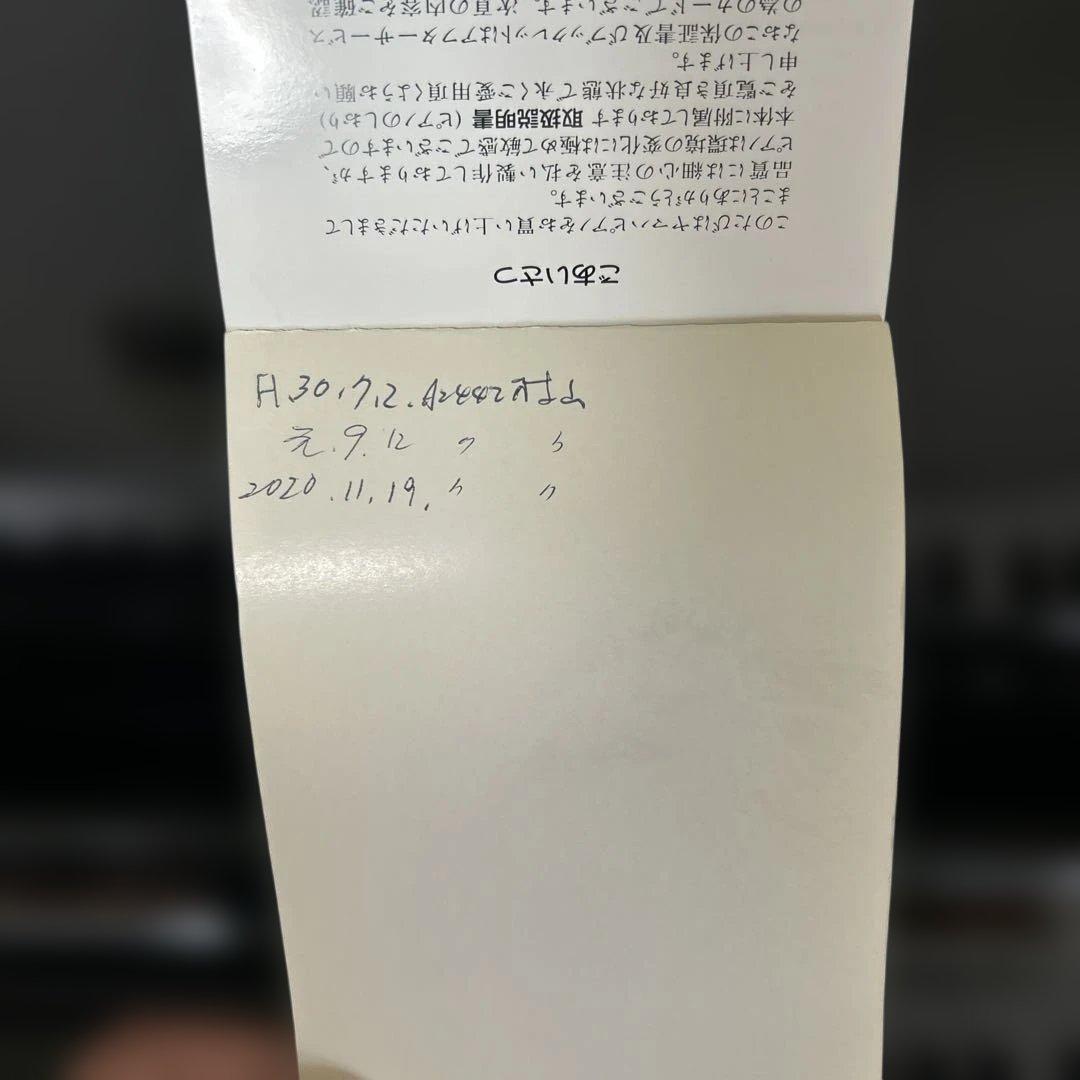 ごあいさつ
このたびはヤマハピアノをお買い上げいただきまして
まことにありがとうございます。
品質には細心の注意を払い製作しておりますが、
ピアノは環境の変化には極めて敏感でございますので
本体に附属しております 取扱説明書 (ピアノのしおり)
をご覧頂き良好な状態で永くご愛用頂くようお願い
申し上げます。
なおこの保証書及びブックレットはアフターサービス
の為のカードでございます。次頁の内容をご確認
H.30.7.2. A2442
元.9.12 〃 〃
2020.11.19. 〃 〃